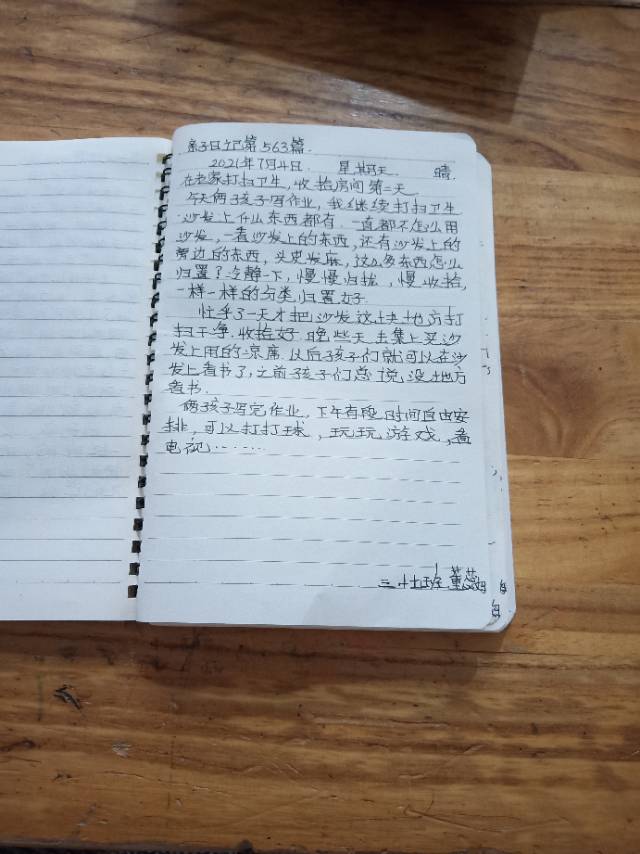 亲子日记第563篇.
2021年7月4日. 星期天. 晴.
在老家打扫卫生,收拾房间第二天.
今天俩孩子写作业,我继续打扫卫生
沙发上什么东西都有.一直都不怎么用
沙发,一看沙发上的东西,还有沙发上的
旁边的东西,头更发麻,这么多东西怎么
归置了冷静一下,慢慢归拢,慢收拾,
一样一样的分类归置好.
忙乎了一天才把沙发这块地方打
扫干净收拾好.晚些天去集上买沙
发上用的凉席.以后孩子们就可以在沙
发上看书了,之前孩子们总说没地方
看书.
俩孩子写完作业,下午有段时间自由安
排,可以打打球,玩玩游戏,看
电视……
三十七班董